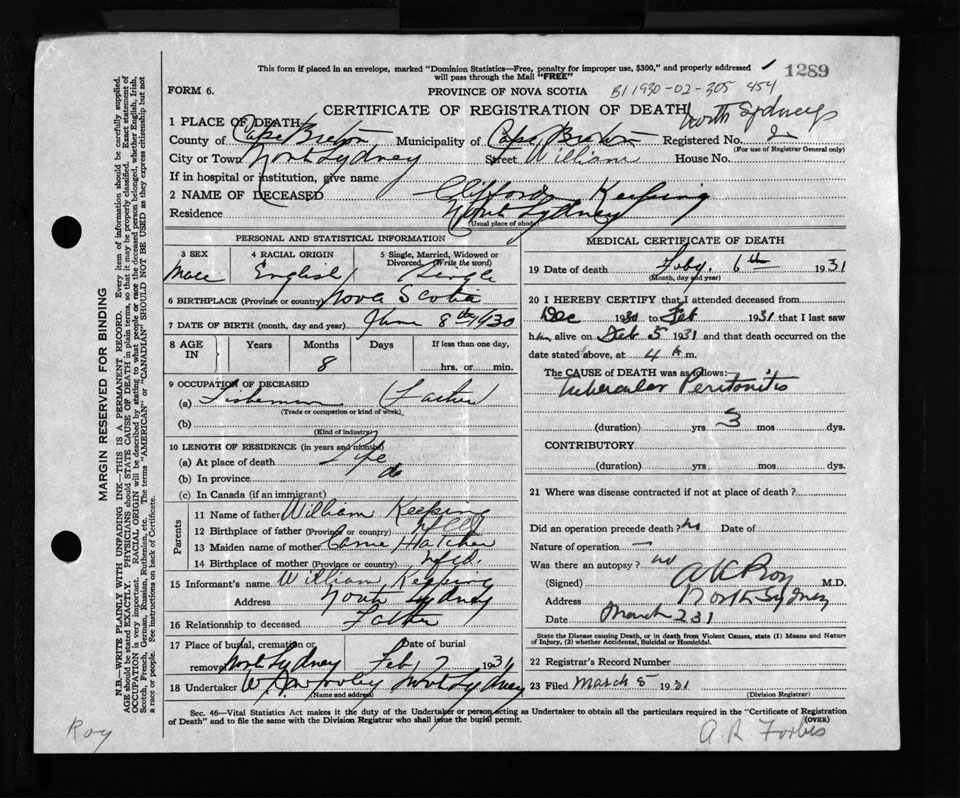 This form if placed in an envelope, marked "Dominion Statistics—Free, penalty for improper use, $300," and properly addressed
will pass through the Mail "FREE"
1289
FORM 6.
PROVINCE OF NOVA SCOTIA
B1 1930-02-305 454
CERTIFICATE OF REGISTRATION OF DEATH
North Sydney
1 PLACE OF DEATH
County of Cape Breton Municipality of Cape Breton Registered No. 2
(For use of Registrar General only)
City or Town North Sydney Street William House No.
If in hospital or institution, give name
2 NAME OF DECEASED Clifford Keeping
Residence North Sydney
(Usual place of abode)
PERSONAL AND STATISTICAL INFORMATION
3 SEX 4 RACIAL ORIGIN 5 Single, Married, Widowed or
Divorced, (Write the word)
Male English Single
6 BIRTHPLACE (Province or country) Nova Scotia
7 DATE OF BIRTH (month, day and year) June 8th 1930
8 AGE IN Years Months Days If less than one day,
8 hrs. or min.
9 OCCUPATION OF DECEASED
(a) Fisherman (Father)
(Trade or occupation or kind of work)
(b)
(Kind of industry)
10 LENGTH OF RESIDENCE (in years and months)
(a) At place of death Life
(b) In province do
(c) In Canada (if an immigrant)
Parents
11 Name of father William Keeping
12 Birthplace of father (Province or country) Nfld
13 Maiden name of mother Hatcher
14 Birthplace of mother (Province or country) Nfld.
15 Informant's name William Keeping
Address North Sydney
16 Relationship to deceased Father
17 Place of burial, cremation or Date of burial
removal North Sydney Feb 7 1931
18 Undertaker North Sydney
(Name and address)
MEDICAL CERTIFICATE OF DEATH
19 Date of death Feby. 6th 1931
(Month, day and year)
20 I HEREBY CERTIFY that I attended deceased from
Dec 1930 to Feb 1931 that I last saw
him alive on Feb 5 1931 and that death occurred on
date stated above, at 4 A m.
The CAUSE of DEATH was as follows:
Tubercular Peritonitis
(duration) yrs 3 mos dys.
CONTRIBUTORY
(duration) yrs mos dys.
21 Where was disease contracted if not at place of death ?
Did an operation precede death? no Date of
Nature of operation —
Was there an autopsy ? no
(Signed) Roy M.D.
Address North Sydney
Date March 2 31
State the Disease causing Death, or in death from Violent Causes, state (1) Means and Nature
of Injury, (2) whether Accidental, Suicidal or Homicidal.
22 Registrar's Record Number
23 Filed March 5 1931
(Division Registrar)
Sec. 46—Vital Statistics Act makes it the duty of the Undertaker or person acting as Undertaker to obtain all the particulars required in the "Certificate of Registration
of Death" and to file the same with the Division Registrar who shall issue the burial permit.
(OVER)
Roy
A R Forbes
MARGIN RESERVED FOR BINDING
N.B.—WRITE PLAINLY WITH UNFADING INK—THIS IS A PERMANENT RECORD. Every item of information should be carefully supplied.
AGE should be stated EXACTLY. PHYSICIANS should STATE CAUSE OF DEATH in plain terms, so that it may be properly classified. Exact statement of
OCCUPATION is very important. RACIAL ORIGIN will be described by stating to what people or race the deceased person belonged, whether English, Irish,
Scotch, French, German, Russian, Ruthenian, etc. The terms "AMERICAN" or "CANADIAN" SHOULD NOT BE USED as they express citizenship but not
a race or people. See instructions on back of Certificate.